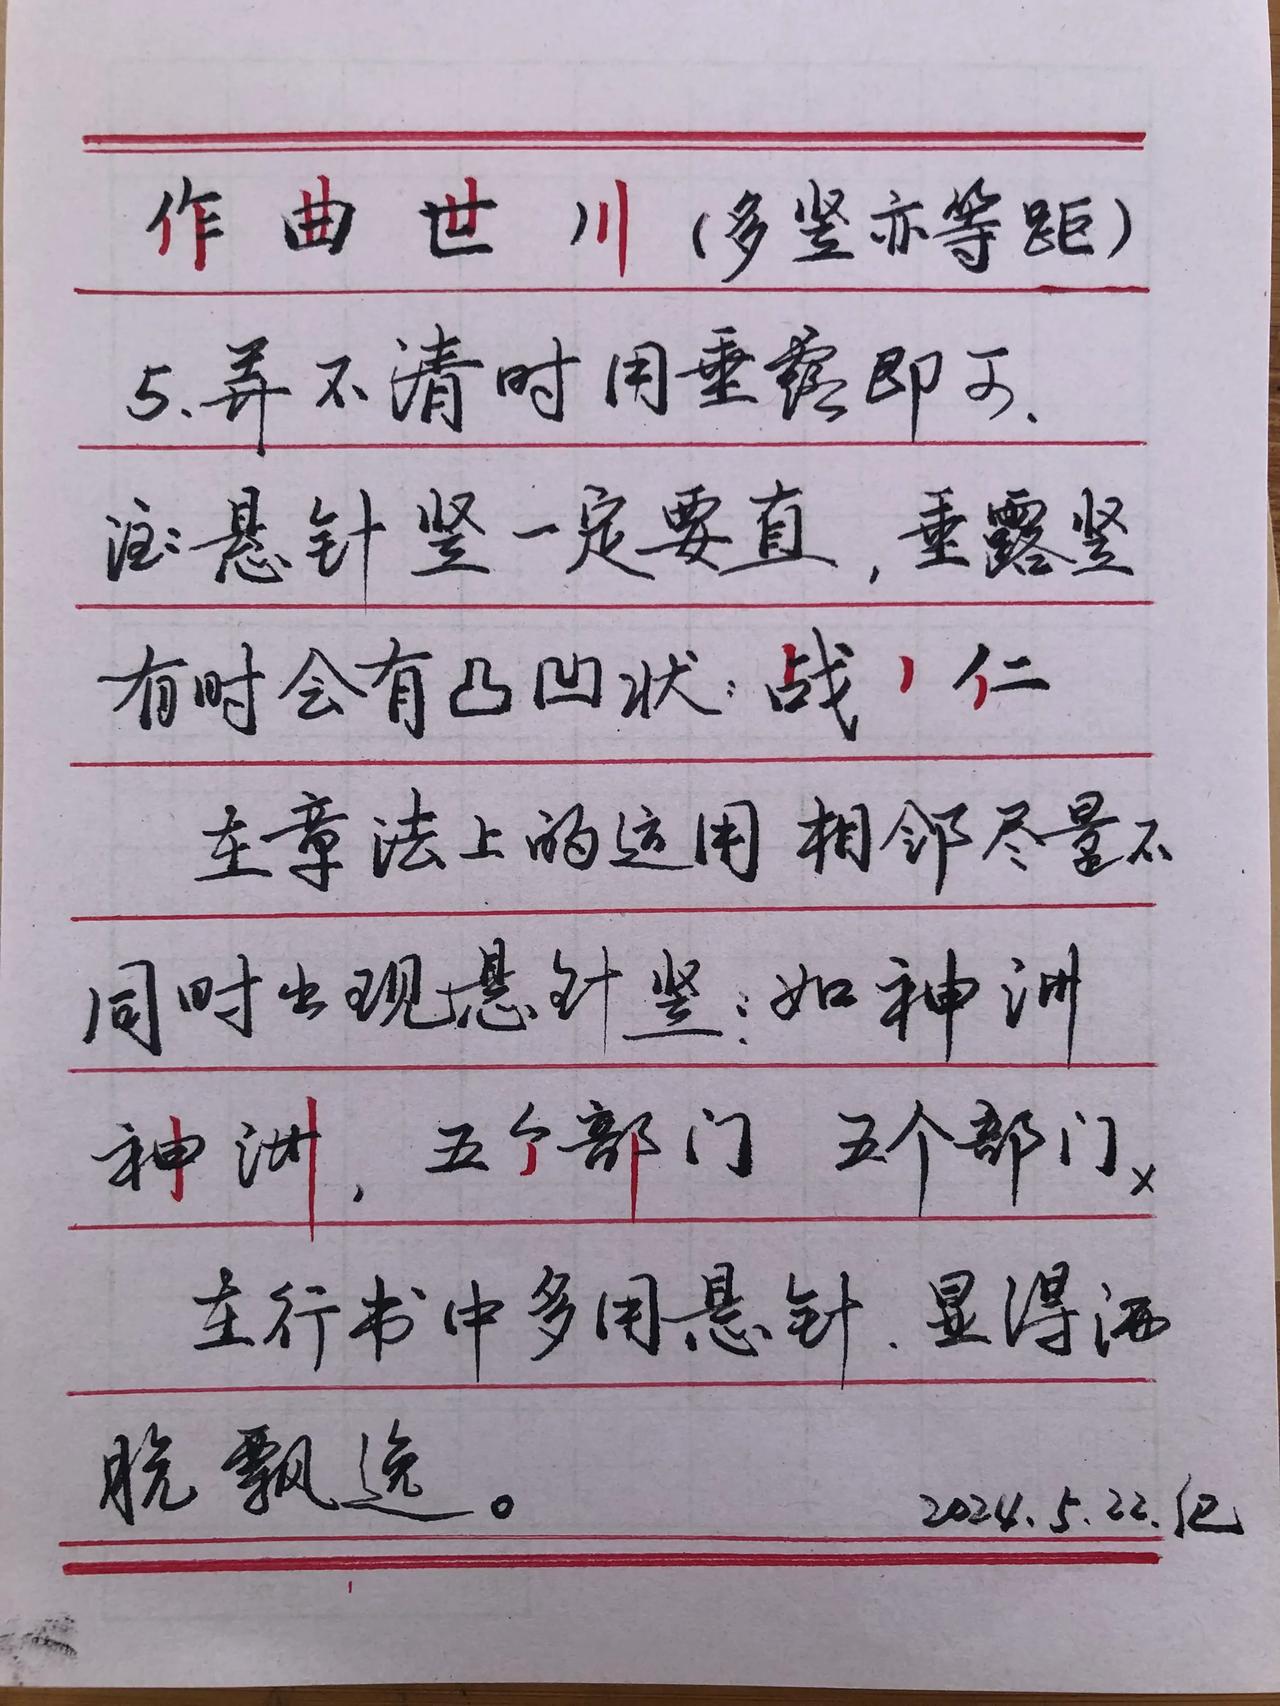 作 曲 世 川 (多竖亦等距)
5.弄不清时用垂露即可.
注:悬针竖一定要直,垂露竖
有时会有凸凹状:战 丿 仁
在章法上的运用 相邻尽量不
同时出现悬针竖:如神洲
神洲, 五个部门 五个部门x
在行书中多用悬针.显得洒
脱飘逸。
2024.5.22.记